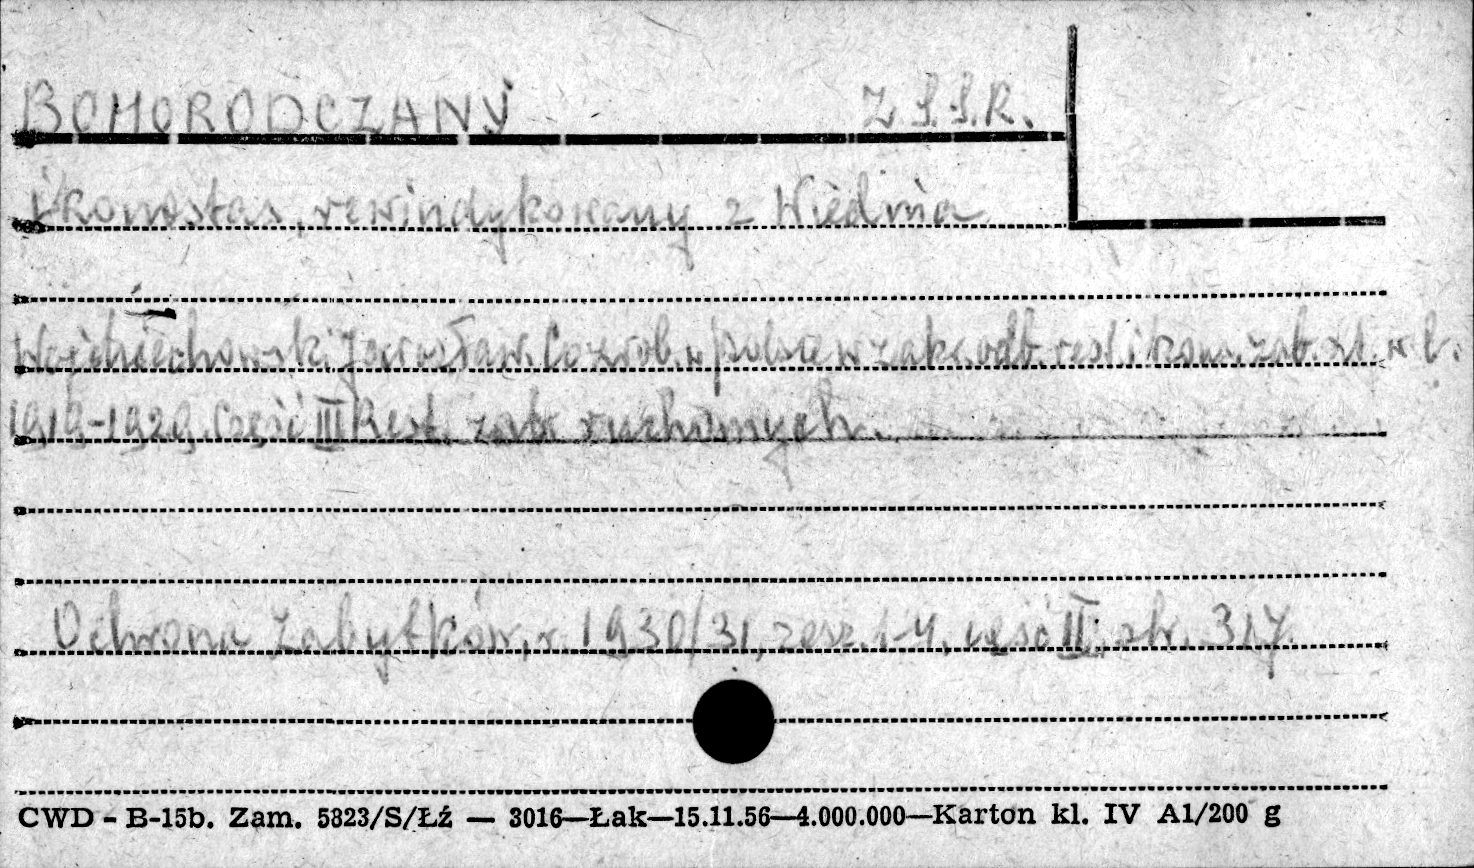 BOHORODCZANY Z.S.S.R.
ikonostas, rewindykowany z Wiednia
Wojciechowski Jarosław. Co zrob. w Polsce w zakr. odb. rest. i kons. zab. szt. w l.
1919-1929. Część III Rest. zab. ruchomych.
Ochrona Zabytków, r. 1930/31, zesz. 1-4, część II, str. 317.
CWD - B-15b. Zam. 5823/S/Łź — 3016—Łak—15.11.56—4.000.000—Karton kl. IV A1/200 g